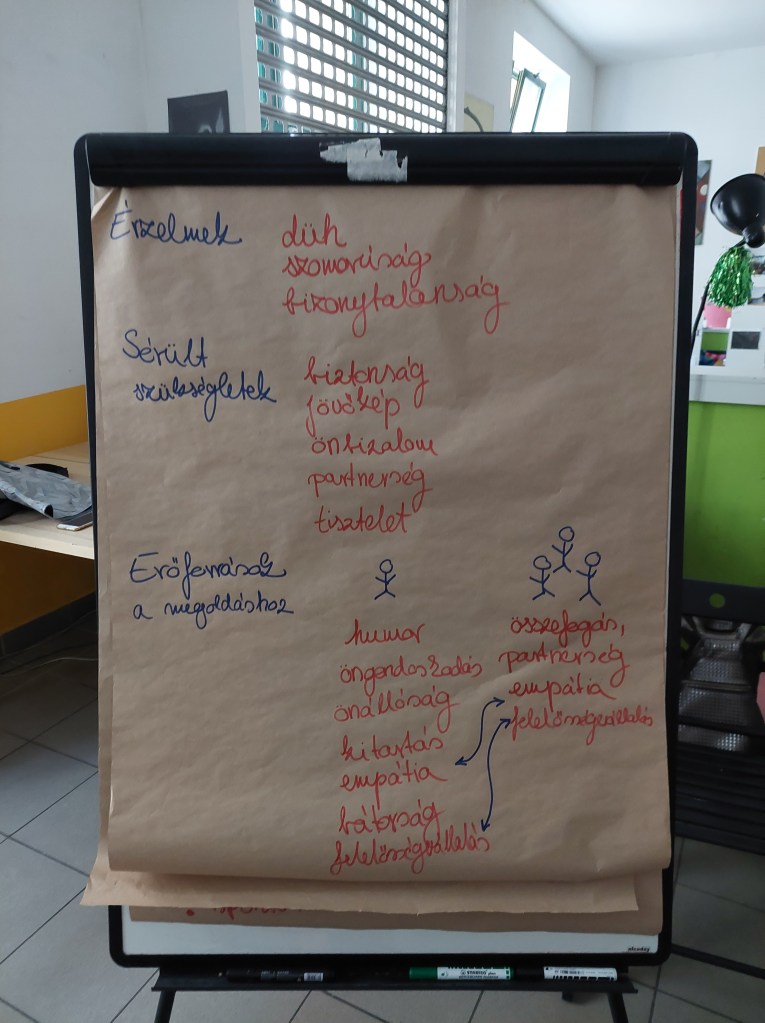 Érzelmek
düh
szomorúság
bizonytalanság
Sérült
szükségletek
biztonság
jövőkép
önbizalom
partnerség
tisztelet
Erőforrások
a megoldáshoz
humor
öngondoskodás
önállóság
kitartás
empátia
bátorság
felelősségvállalás
összefogás,
partnerség
empátia
felelősségvállalás